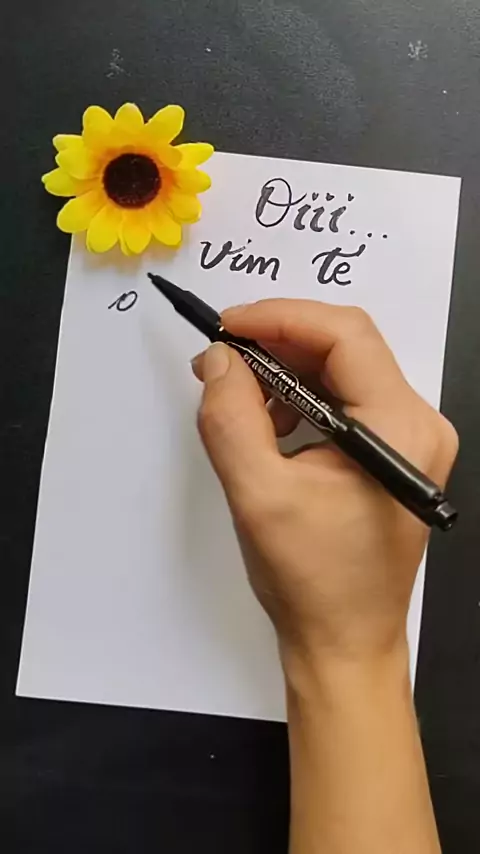 Oiii...
vim te
o
PERMANENT MARKER